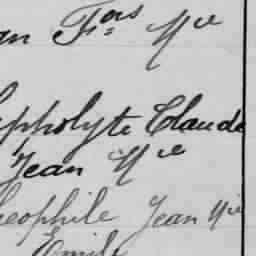 an Fois Mie
ippolyte Claude
Jean Mie
heophile Jean Mie
Emile